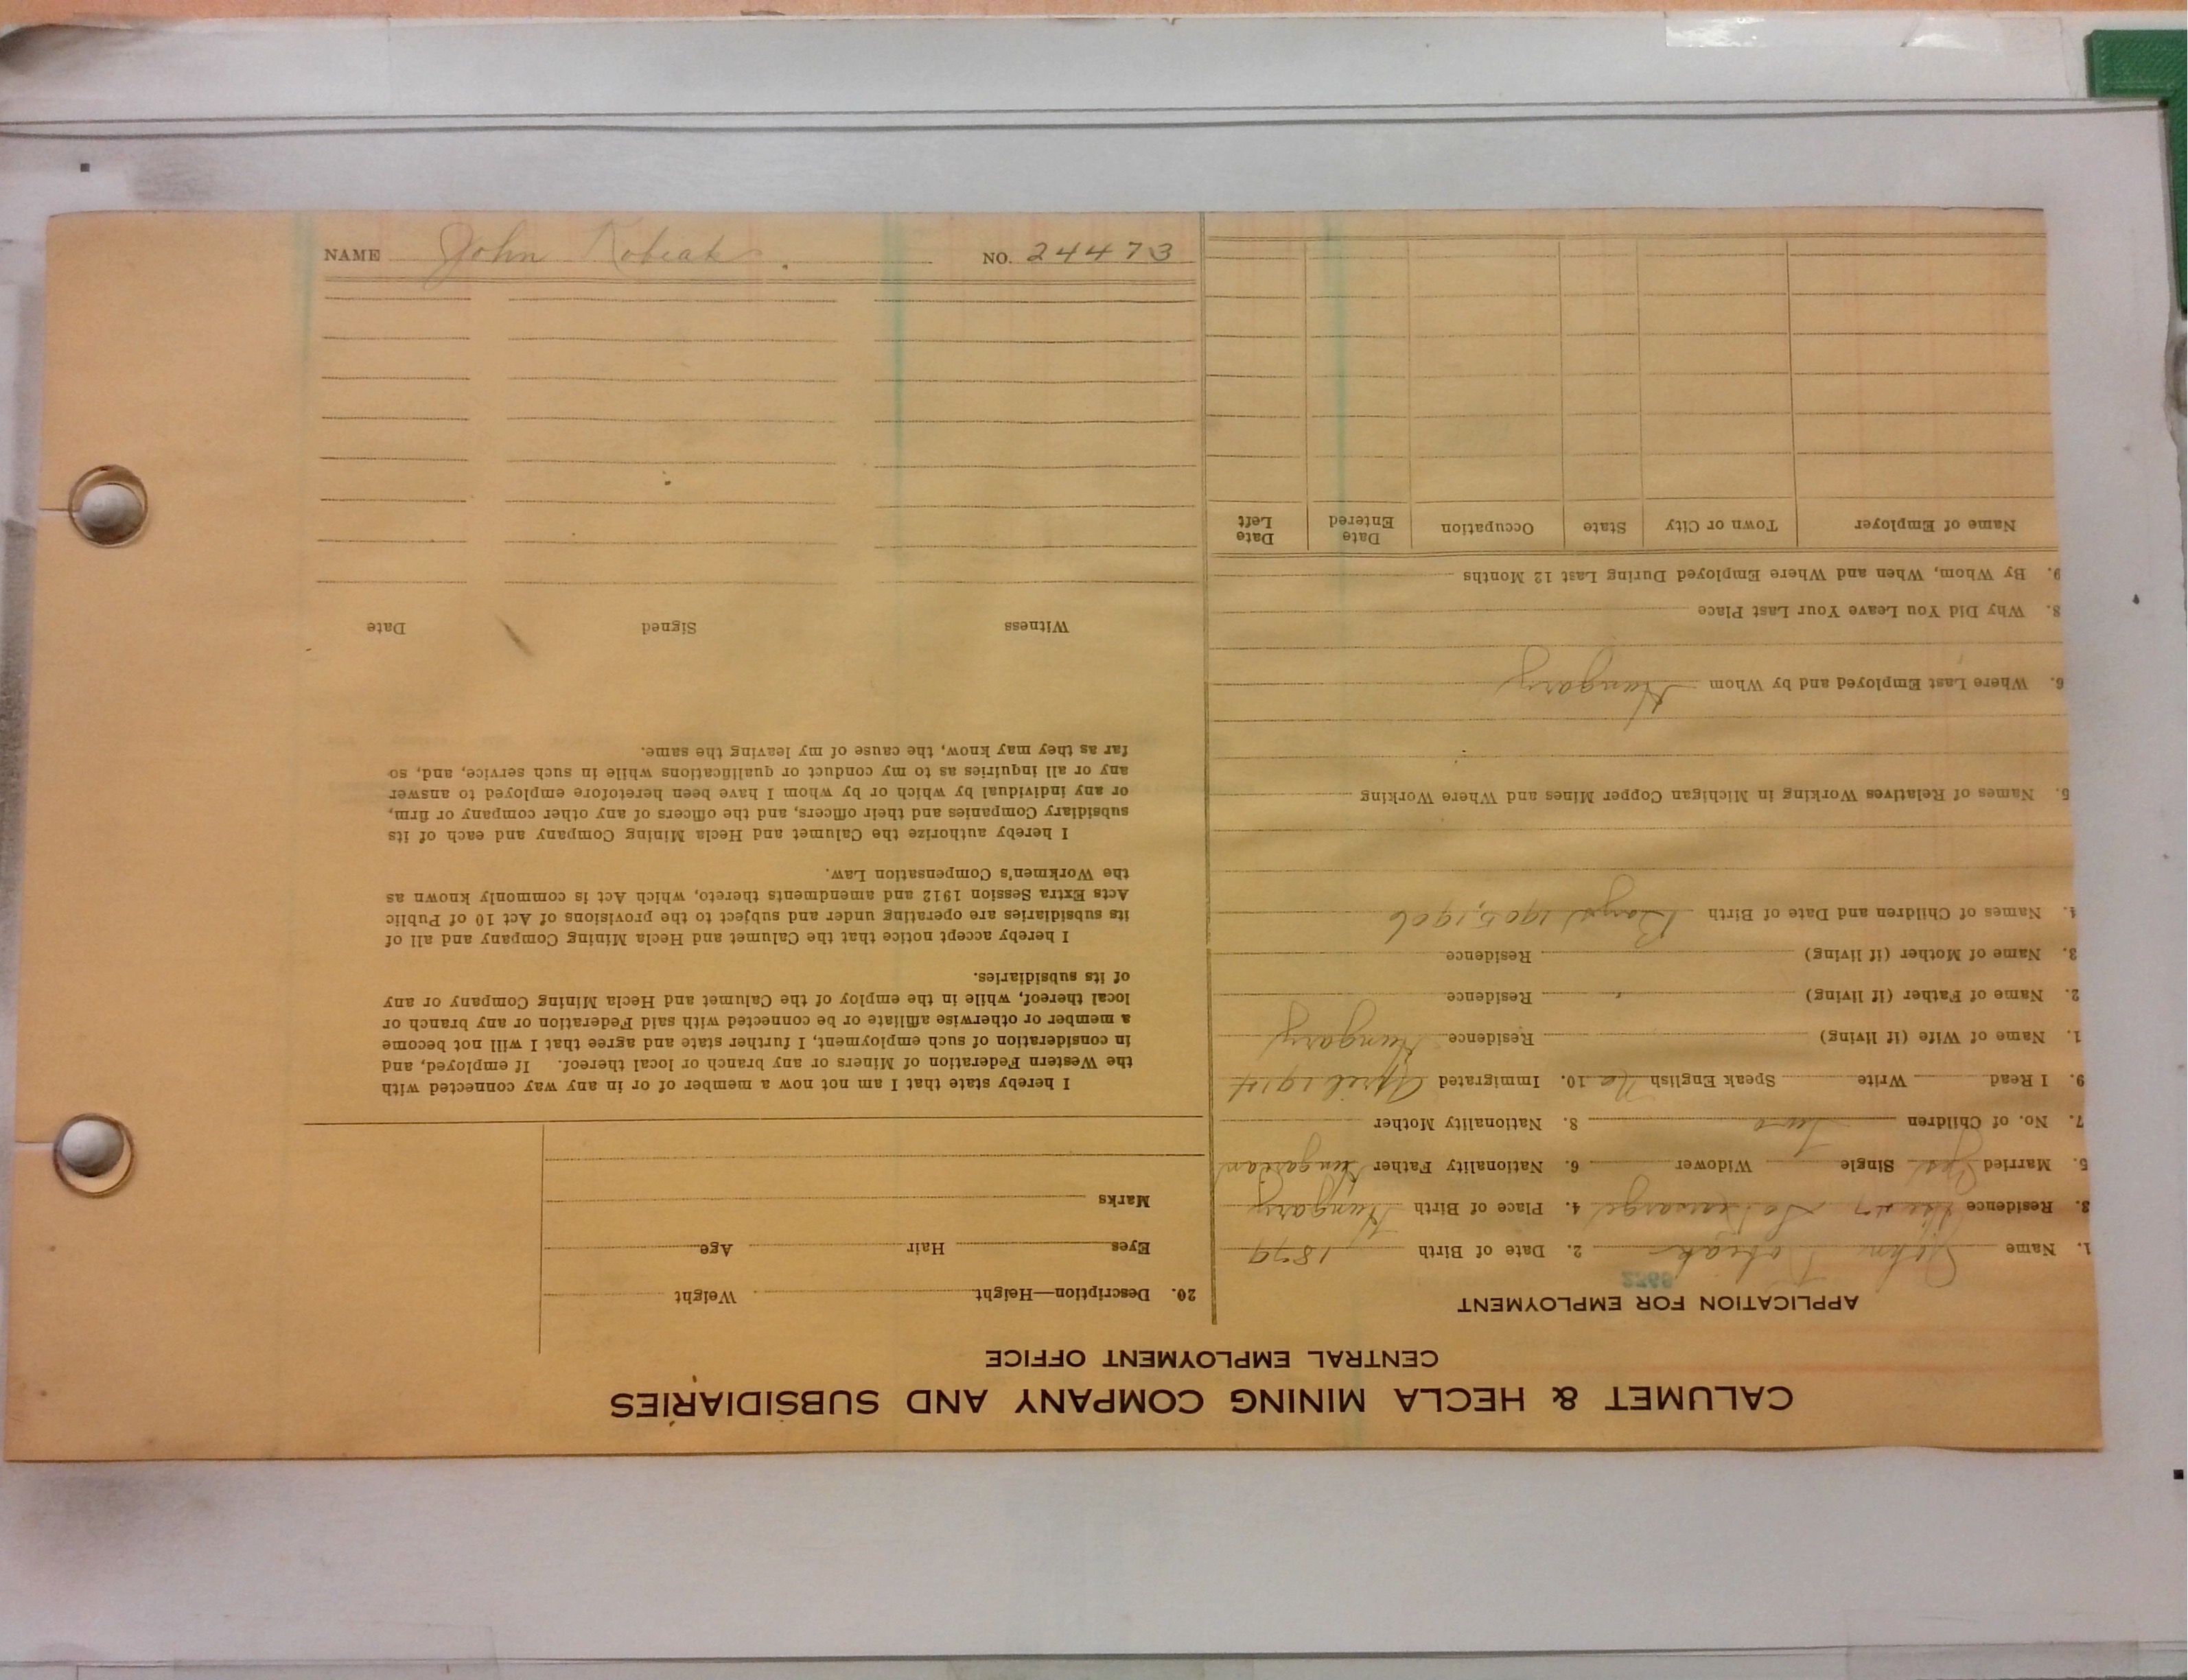 NAME John Kobeak NO. 24473
CALUMET & HECLA MINING COMPANY AND SUBSIDIARIES
CENTRAL EMPLOYMENT OFFICE
APPLICATION FOR EMPLOYMENT
1. Name John Kobeak 2. Date of Birth 1879
3. Residence 4. Place of Birth Hungary
5. Married Yes Single Widower 6. Nationality Father Hungarian
7. No. of Children Two 8. Nationality Mother
9. I Read Write Speak English No 10. Immigrated April 1914
1. Name of Wife (if living) Residence Hungary
2. Name of Father (if living) Residence
3. Name of Mother (if living) Residence
4. Names of Children and Date of Birth Boys 1905, 1906
5. Names of Relatives Working in Michigan Copper Mines and Where Working
6. Where Last Employed and by Whom Hungary
8. Why Did You Leave Your Last Place
9. By Whom, When and Where Employed During Last 12 Months
Name of Employer Town or City State Occupation Date Entered Date Left
20. Description—Height Weight
Eyes Hair Age
Marks
I hereby state that I am not now a member of or in any way connected with
the Western Federation of Miners or any branch or local thereof. If employed, and
in consideration of such employment, I further state and agree that I will not become
a member or otherwise affiliate or be connected with said Federation or any branch or
local thereof, while in the employ of the Calumet and Hecla Mining Company or any
of its subsidiaries.
I hereby accept notice that the Calumet and Hecla Mining Company and all of
its subsidiaries are operating under and subject to the provisions of Act 10 of Public
Acts Extra Session 1912 and amendments thereto, which Act is commonly known as
the Workmen's Compensation Law.
I hereby authorize the Calumet and Hecla Mining Company and each of its
subsidiary Companies and their officers, and the officers of any other company or firm,
or any individual by which or by whom I have been heretofore employed to answer
any or all inquiries as to my conduct or qualifications while in such service, and, so
far as they may know, the cause of my leaving the same.
Witness Signed Date